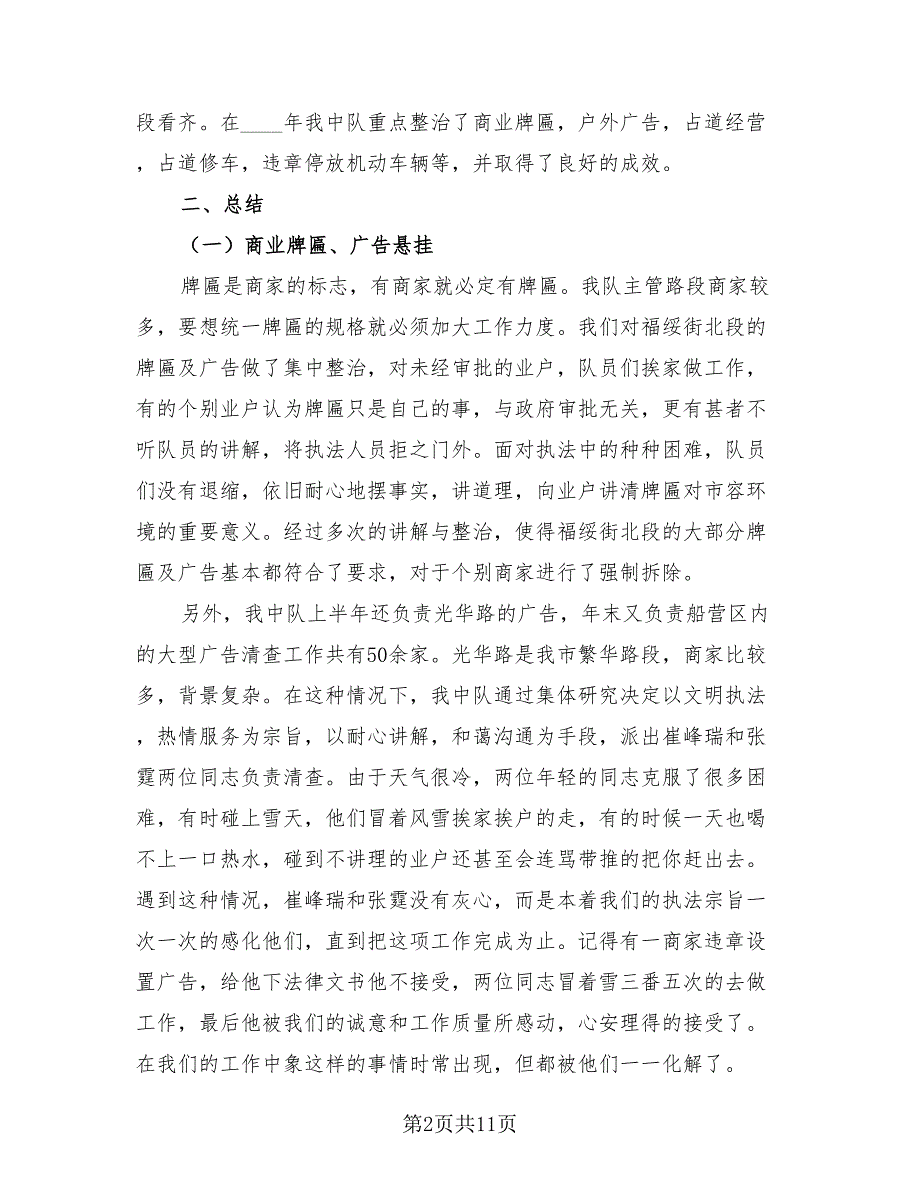 段看齐。在____年我中队重点整治了商业牌匾，户外广告，占道经营
，占道修车，违章停放机动车辆等，并取得了良好的成效。
二、总结
（一）商业牌匾、广告悬挂
牌匾是商家的标志，有商家就必定有牌匾。我队主管路段商家较
多，要想统一牌匾的规格就必须加大工作力度。我们对福绥街北段的
牌匾及广告做了集中整治，对未经审批的业户，队员们挨家做工作，
有的个别业户认为牌匾只是自己的事，与政府审批无关，更有甚者不
听队员的讲解，将执法人员拒之门外。面对执法中的种种困难，队员
们没有退缩，依旧耐心地摆事实，讲道理，向业户讲清牌匾对市容环
境的重要意义。经过多次的讲解与整治，使得福绥街北段的大部分牌
匾及广告基本都符合了要求，对于个别商家进行了强制拆除。
另外，我中队上半年还负责光华路的广告，年末又负责船营区内
的大型广告清查工作共有50余家。光华路是我市繁华路段，商家比较
多，背景复杂。在这种情况下，我中队通过集体研究决定以文明执法
，热情服务为宗旨，以耐心讲解，和蔼沟通为手段，派出崔峰瑞和张
霆两位同志负责清查。由于天气很冷，两位年轻的同志克服了很多困
难，有时碰上雪天，他们冒着风雪挨家挨户的走，有的时候一天也喝
不上一口热水，碰到不讲理的业户还甚至会连骂带推的把你赶出去。
遇到这种情况，崔峰瑞和张霆没有灰心，而是本着我们的执法宗旨一
次一次的感化他们，直到把这项工作完成为止。记得有一商家违章设
置广告，给他下法律文书他不接受，两位同志冒着雪三番五次的去做
工作，最后他被我们的诚意和工作质量所感动，心安理得的接受了。
在我们的工作中象这样的事情时常出现，但都被他们一一化解了。
第2页共11页